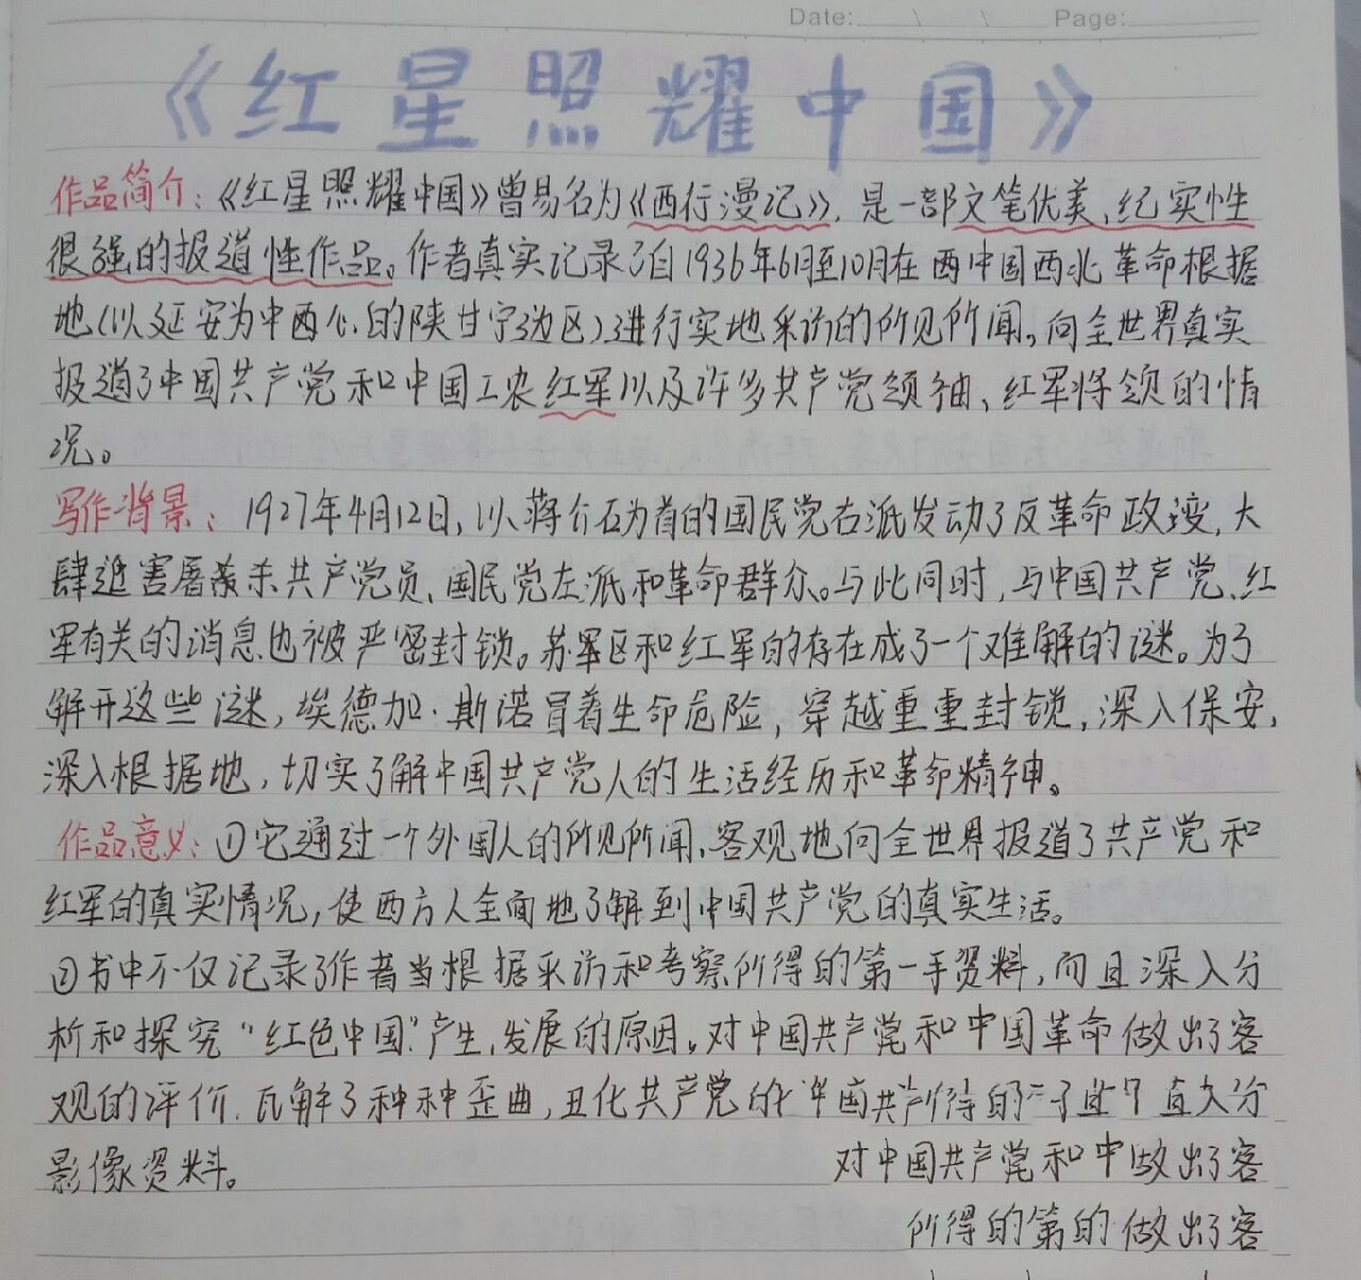 Date: \ \ Page:
《红星照耀中国》
作品简介:《红星照耀中国》曾易名为《西行漫记》,是一部文笔优美、纪实性
很强的报道性作品。作者真实记录了自1936年6月至10月在西中国西北革命根据
地(以延安为中西心的陕甘宁边区)进行实地采访的所见所闻,向全世界真实
报道了中国共产党和中国工农红军以及许多共产党领袖、红军将领的情
况。
写作背景:1927年4月12日,以蒋介石为首的国民党右派发动了反革命政变,大
肆迫害屠杀共产党员、国民党左派和革命群众。与此同时,与中国共产党、红
军有关的消息也被严密封锁。苏军区和红军的存在成了一个难解的谜。为了
解开这些谜,埃德加·斯诺冒着生命危险,穿越重重封锁,深入保安,
深入根据地,切实了解中国共产党人的生活经历和革命精神。
作品意义:①它通过一个外国人的所见所闻,客观地向全世界报道了共产党和
红军的真实情况,使西方人全面地了解到中国共产党的真实生活。
②书中不仅记录了作者当根据采访和考察所得的第一手资料,而且深入分
析和探究“红色中国”产生、发展的原因,对中国共产党和中国革命做出了客
观的评价,瓦解了种种歪曲,丑化共产党的
影像资料。 对中国共产党和中做出了客
所得的第的做出了客